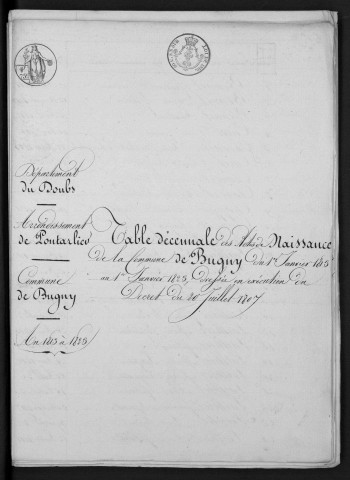 Département
du Doubs
Arrondissement
de Pontarlier
Commune
de Bugny
An 1813 à 1823
Table décennale des Actes de Naissance
de la Commune de Bugny du 1er Janvier 1813
au 1er Janvier 1823, dressée en exécution du
Décret du 20 Juillet 1807